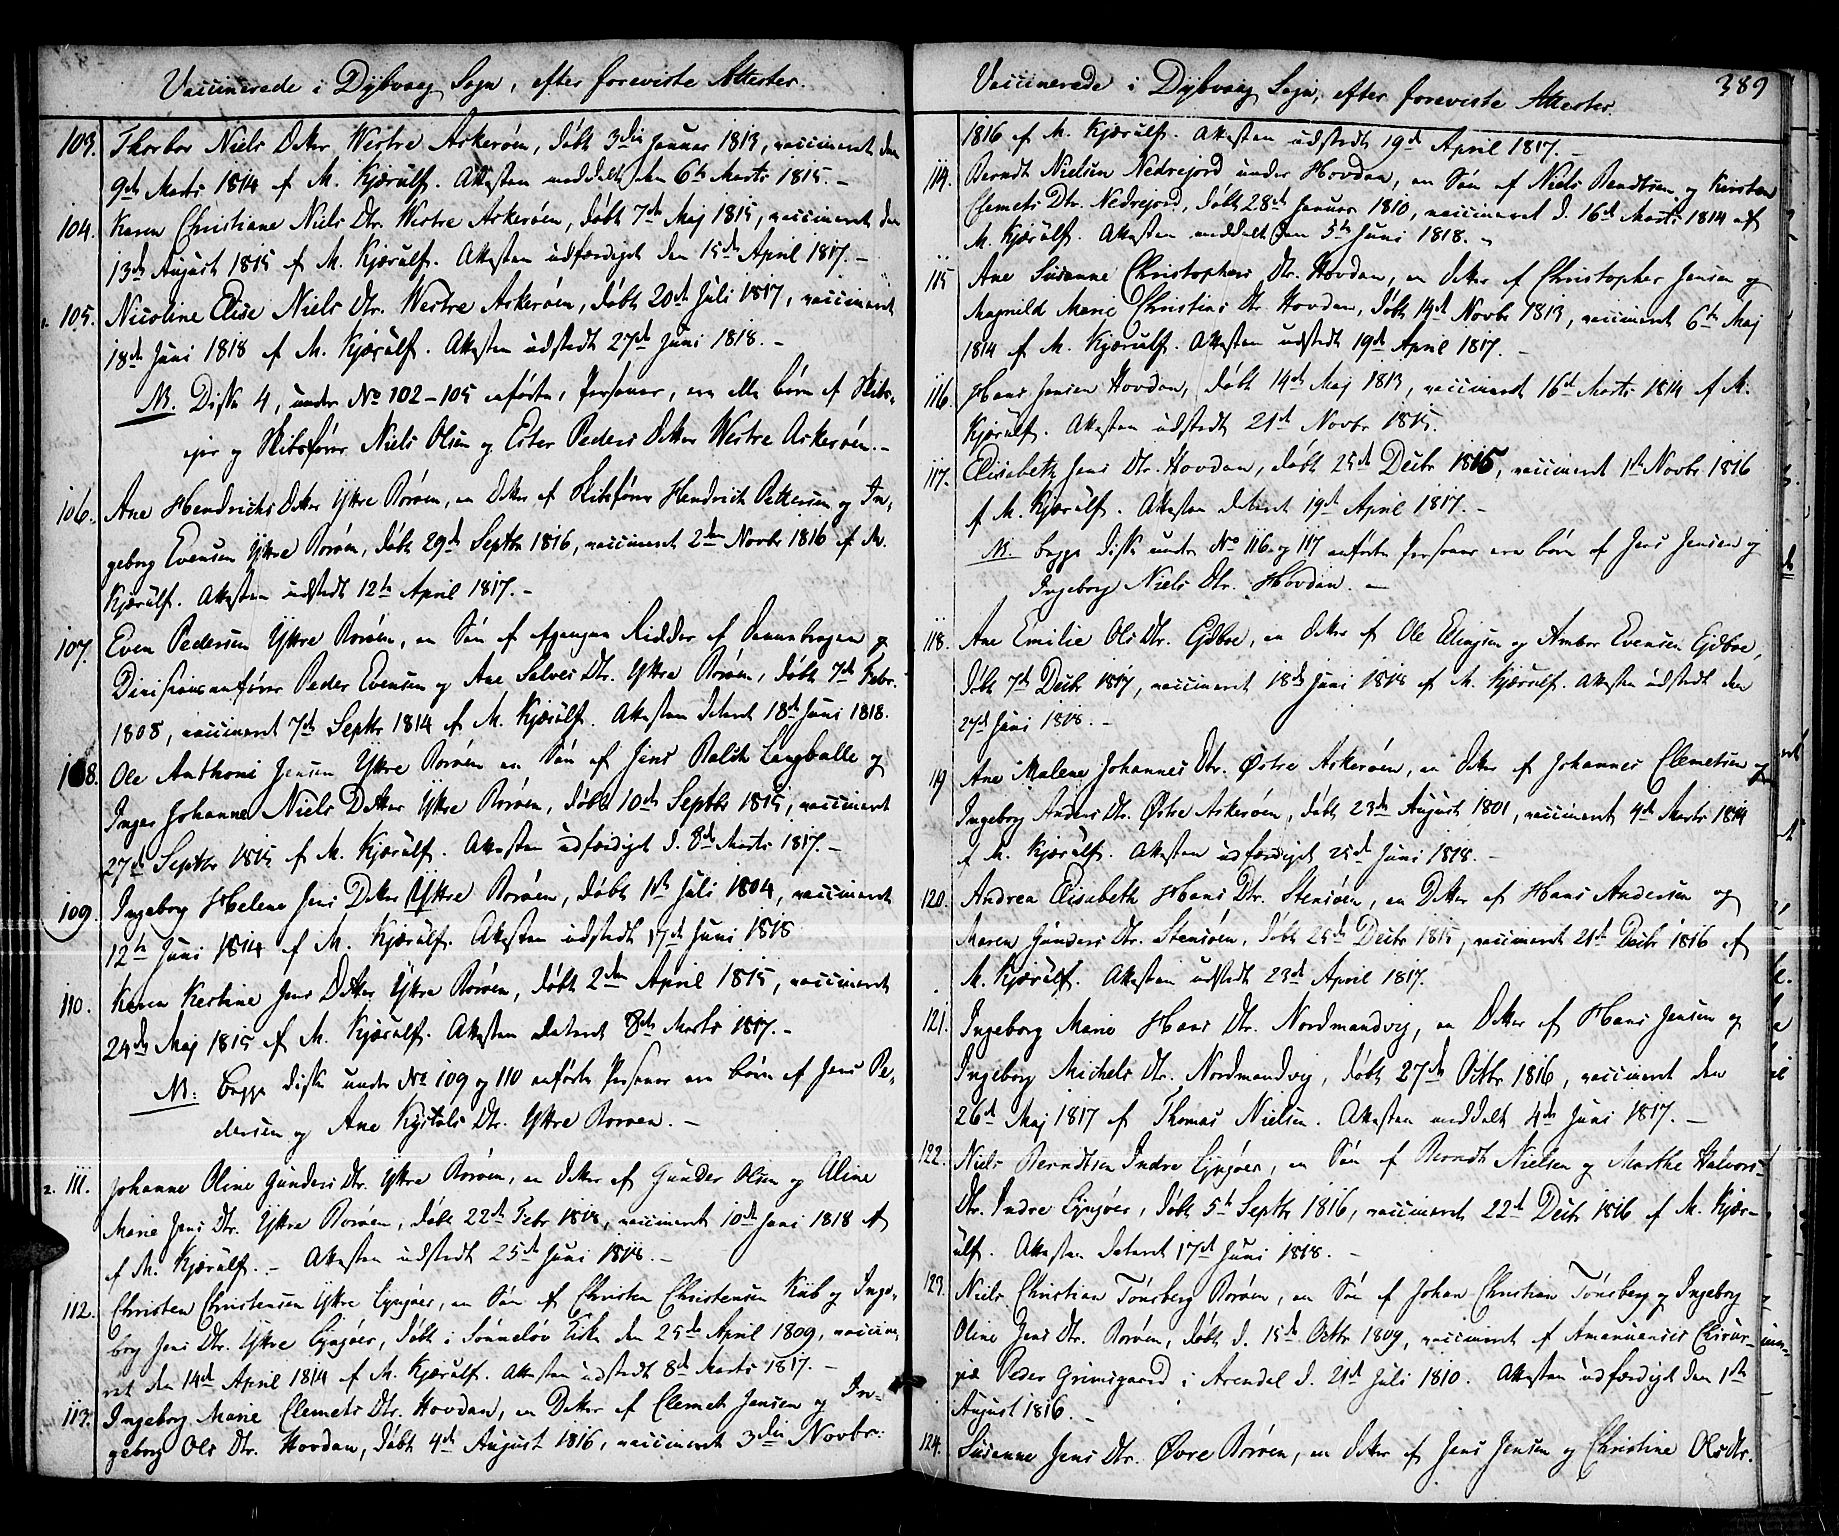 Vaccinerede i Dybvaag Sogn, efter foreviste Attester.
103. Thorbor Niels Datter Westre Askerøen, døbt 3die Januar 1813, vaccineret den
9de Marts 1814 af M. Kjærulf. Attesten meddelt den 6te Marts 1815.-
104. Karen Christiane Niels Dtr. Westre Askerøen, døbt 7de Maj 1815, vaccineret den
13de August 1815 af M. Kjærulf. Attesten udfærdiget den 15de April 1817.-
105. Nicoline Elise Niels Dtr. Westre Askerøen, døbt 20de Juli 1817, vaccineret
18de Juni 1818 af M. Kjærulf. Attesten udstedt 27de Juni 1818.-
NB. Disse 4, under No 102-105 anførte, Personer, ere alle børn af Skibs-
ejer og Skibsfører Niels Olsen og Ester Peders Datter Westre Askerøen.-
106. Ane Hendrichs Datter Yttre Borøen, en Datter af Skibsfører Hendrich Pettersen og In-
geborg Evensen Yttre Borøen, døbt 29de Septbr 1816, vaccineret 2den Novbr 1816 af M.
Kjærulf. Attesten udstedt 12te April 1817.-
107. Even Pedersen Yttre Borøen, en Søn af afgangne Ridder af Dannebrogen og
Divisionsanfører Peder Evensen og Ane Halvors Dtr. Yttre Borøen, døbt 7de Febr.
1808, vaccineret 7de Septbr 1814 af M. Kjærulf. Attesten dateret 18de Juni 1818.
108. Ole Anthoni Jensen Yttre Borøen en Søn af Jens Balck Langballe og
Inger Johanne Niels Datter Yttre Borøen, døbt 10de Septbr 1815, vaccineret
27de Septbr 1815 af M. Kjærulf. Attesten udfærdiget d. 8de Marts 1817.-
109. Ingeborg Helene Jens Datter Yttre Borøen, døbt 1ste Juli 1804, vaccineret
12te Juni 1814 af M. Kjærulf. Attesten udstedt 17de Juni 1818
110. Karen Kestine Jens Datter Yttre Borøen, døbt 2den April 1815, vaccineret
24de Maj 1815 af M. Kjærulf. Attesten dateret 8de Marts 1817.-
NB. begge disse under No 109 og 110 anførte Personer ere børn af Jens Pe-
dersen og Ane Kystols Dtr. Yttre Borøen.-
111. Johanne Oline Gunders Dtr. Yttre Borøen, en Datter af Gunder Olsen og Aline
Marie Jens Dtr. Yttre Borøen, døbt 22de Febr 1818, vaccineret 10de Juni 1818 af
af M. Kjærulf.- Attesten udstedt 25de Juni 1818.-
112. Christen Christensen Yttre Gjugøer, en Søn af Christen Christensen Kiib og Inge-
borg Jens Dtr. Yttre Gjugøer, døbt i Sønneløv Kirke den 25de April 1809, vaccine-
ret den 14de April 1814 af M. Kjærulf. Attesten udstedt 8de Marts 1817.-
113. Ingeborg Marie Clemets Dtr. Hovdan, en Datter af Clemet Jensen og In-
geborg Ols Dtr. Hovdan, døbt 4de August 1816, vaccineret 3die Novbr.
Vaccinerede i Dybvaag Sogn, efter foreviste Attester.
389
1816 af M. Kjærulf. Attesten udstedt 19de April 1817.-
114. Berndt Nielsen Nedrejord under Hovdan, en Søn af Niels Bendtsen og Kirsten
Clemets Dtr. Nedrejord, døbt 28de Januar 1810, vaccineret d. 16de Marts 1814 af
M. Kjærulf. Attesten meddelt den 5te Juni 1818.-
115 Ane Susanne Christophers Dtr. Hovdan, en datter af Christopher Jensen og
Magnild Marie Christens Dtr Hovdan, døbt 14de Novbr 1813, vaccineret 6te Maj
1814 af M. Kjærulf. Attesten udstedt 19de April 1817.-
116. Hans Jensen Hovdan, døbt 14de Maj 1813, vaccineret 16de Marts 1814 af M.
Kjærulf. Attesten udstedt 21de Novbr 1815.
117. Elisabeth Jens Dtr. Hovdan, døbt 25de Decbr 1815, vaccineret 1ste Novbr 1816
af M. Kjærulf. Attesten dateret 19de April 1817.-
NB. begge disse under No 116 og 117 anførte Personer ere børn af Jens Jensen og
Ingeborg Niels Dtr. Hovdan.-
118. Ane Emilie Ols Dtr. Ejdboe, en Datter af Ole Ellingsen og Ambor Evensen Ejdboe,
døbt 7de Decbr 1817, vaccineret 18de Juni 1818 af M. Kjærulf. Attesten udstedt den
27de Juni 1818.-
119 Ane Malene Johannes Dtr. Østre Askerøen, en Datter af Johannes Clemetsen og
Ingeborg Anders Dtr. Østre Askerøen, døbt 23de August 1801, vaccineret 4de Marts 1814
af M. Kjærulf. Attesten udfærdiget 25de Juni 1818.-
120. Andrea Elisabeth Hans Dtr. Stensøen, en Datter af Hans Andersen og
Maren Gunders Dtr. Stensøen, døbt 25de Decbr 1815, vaccineret 21de Decbr 1816 af
M. Kjærulf. Attesten udstedt 23de April 1817.
121. Ingeborg Marie Hans Dtr. Nordmandvig, en Datter af Hans Jensen og
Ingeborg Michels Dtr. Nordmandvig, døbt 27de Octbr 1816, vaccineret den
26de Maj 1817 af Thomas Nielsen. Attesten meddelt 4de Juni 1817.-
122. Niels Berndtsen Indre Gjugøer, en Søn af Berndt Nielsen og Marthe Halvors-
Dtr. Indre Gjugøer, døbt 5te Septbr 1816, vaccineret 22de Decbr 1816 af M. Kjær-
ulf. Attesten dateret 17de Juni 1818.-
123. Niels Christian Tønsberg Borøen, en Søn af Johan Christian Tønsberg og Ingeborg
Oline Jens Dtr. Borøen, døbt d. 15de Octbr 1809, vaccineret af Amanuensis Chirur-
giæ Peder Grimsgaard i Arendal d. 21de Juli 1810. Attesten udfærdiget den 1ste
August 1816.-
124. Susanne Jens Dtr. Øvre Borøen, en Datter af Jens Jensen og Christine Ols Dtr.